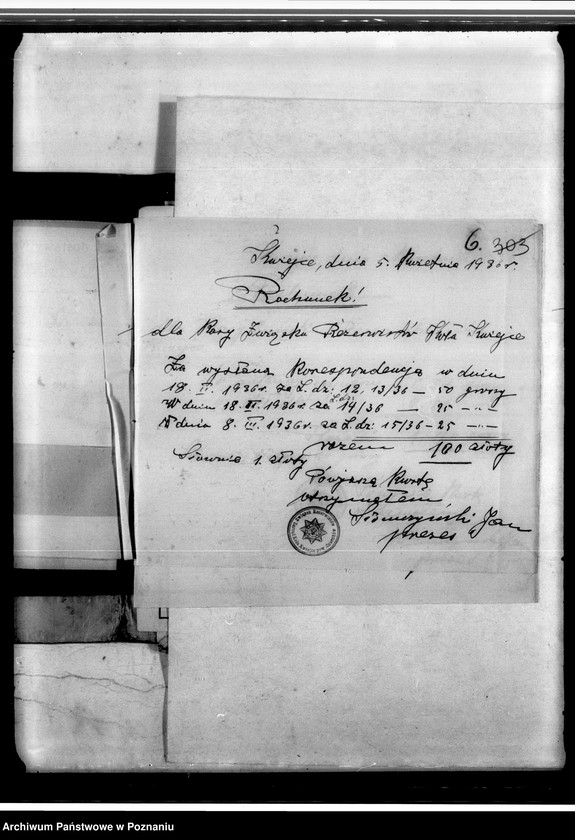 6. 303
Kwiejce, dnia 5. Kwietnia 1936 r.
Rachunek!
dla Kasy Związku Rezerwistów Koła Kwiejce
Za wysłaną Korespondencję w dniu
18. II. 1936 r. za L. dz. 12. 13/36 — 50 groszy
W dniu 18. II. 1936 r. za L. dz. 14/36 — 25 -"-
W dniu 8. III. 1936 r. za L. dz. 15/36 - 25 -"-
razem 1,00 złoty
Słownie 1. złoty
Powyższą Kwotę
otrzymałem
Jan
prezes
Archiwum Państwowe w Poznaniu